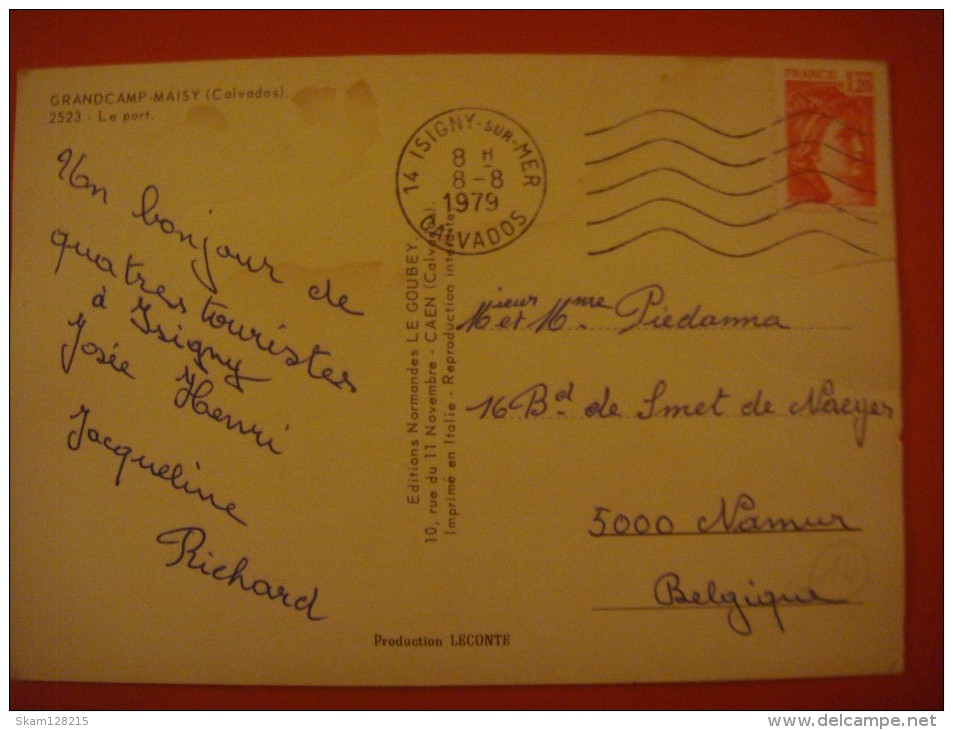 GRANDCAMP-MAISY (Calvados).
2523 - Le port.
Un bonjour de
quatres touristes
à Isigny
Josée Henri
Jacqueline
Richard
14 ISIGNY-SUR-MER
8 H
8-8
1979
CALVADOS
FRANCE 1,20
Editions Normandes LE GOUBEY
10, rue du 11 Novembre - CAEN (Calvados).
Imprimé en Italie - Reproduction interdite
Mieur et Mme Piedanna
16 Bd. de Smet de Naeyer
5000 Namur
Belgique
14
Production LECONTE
Skam128215
www.delcampe.net